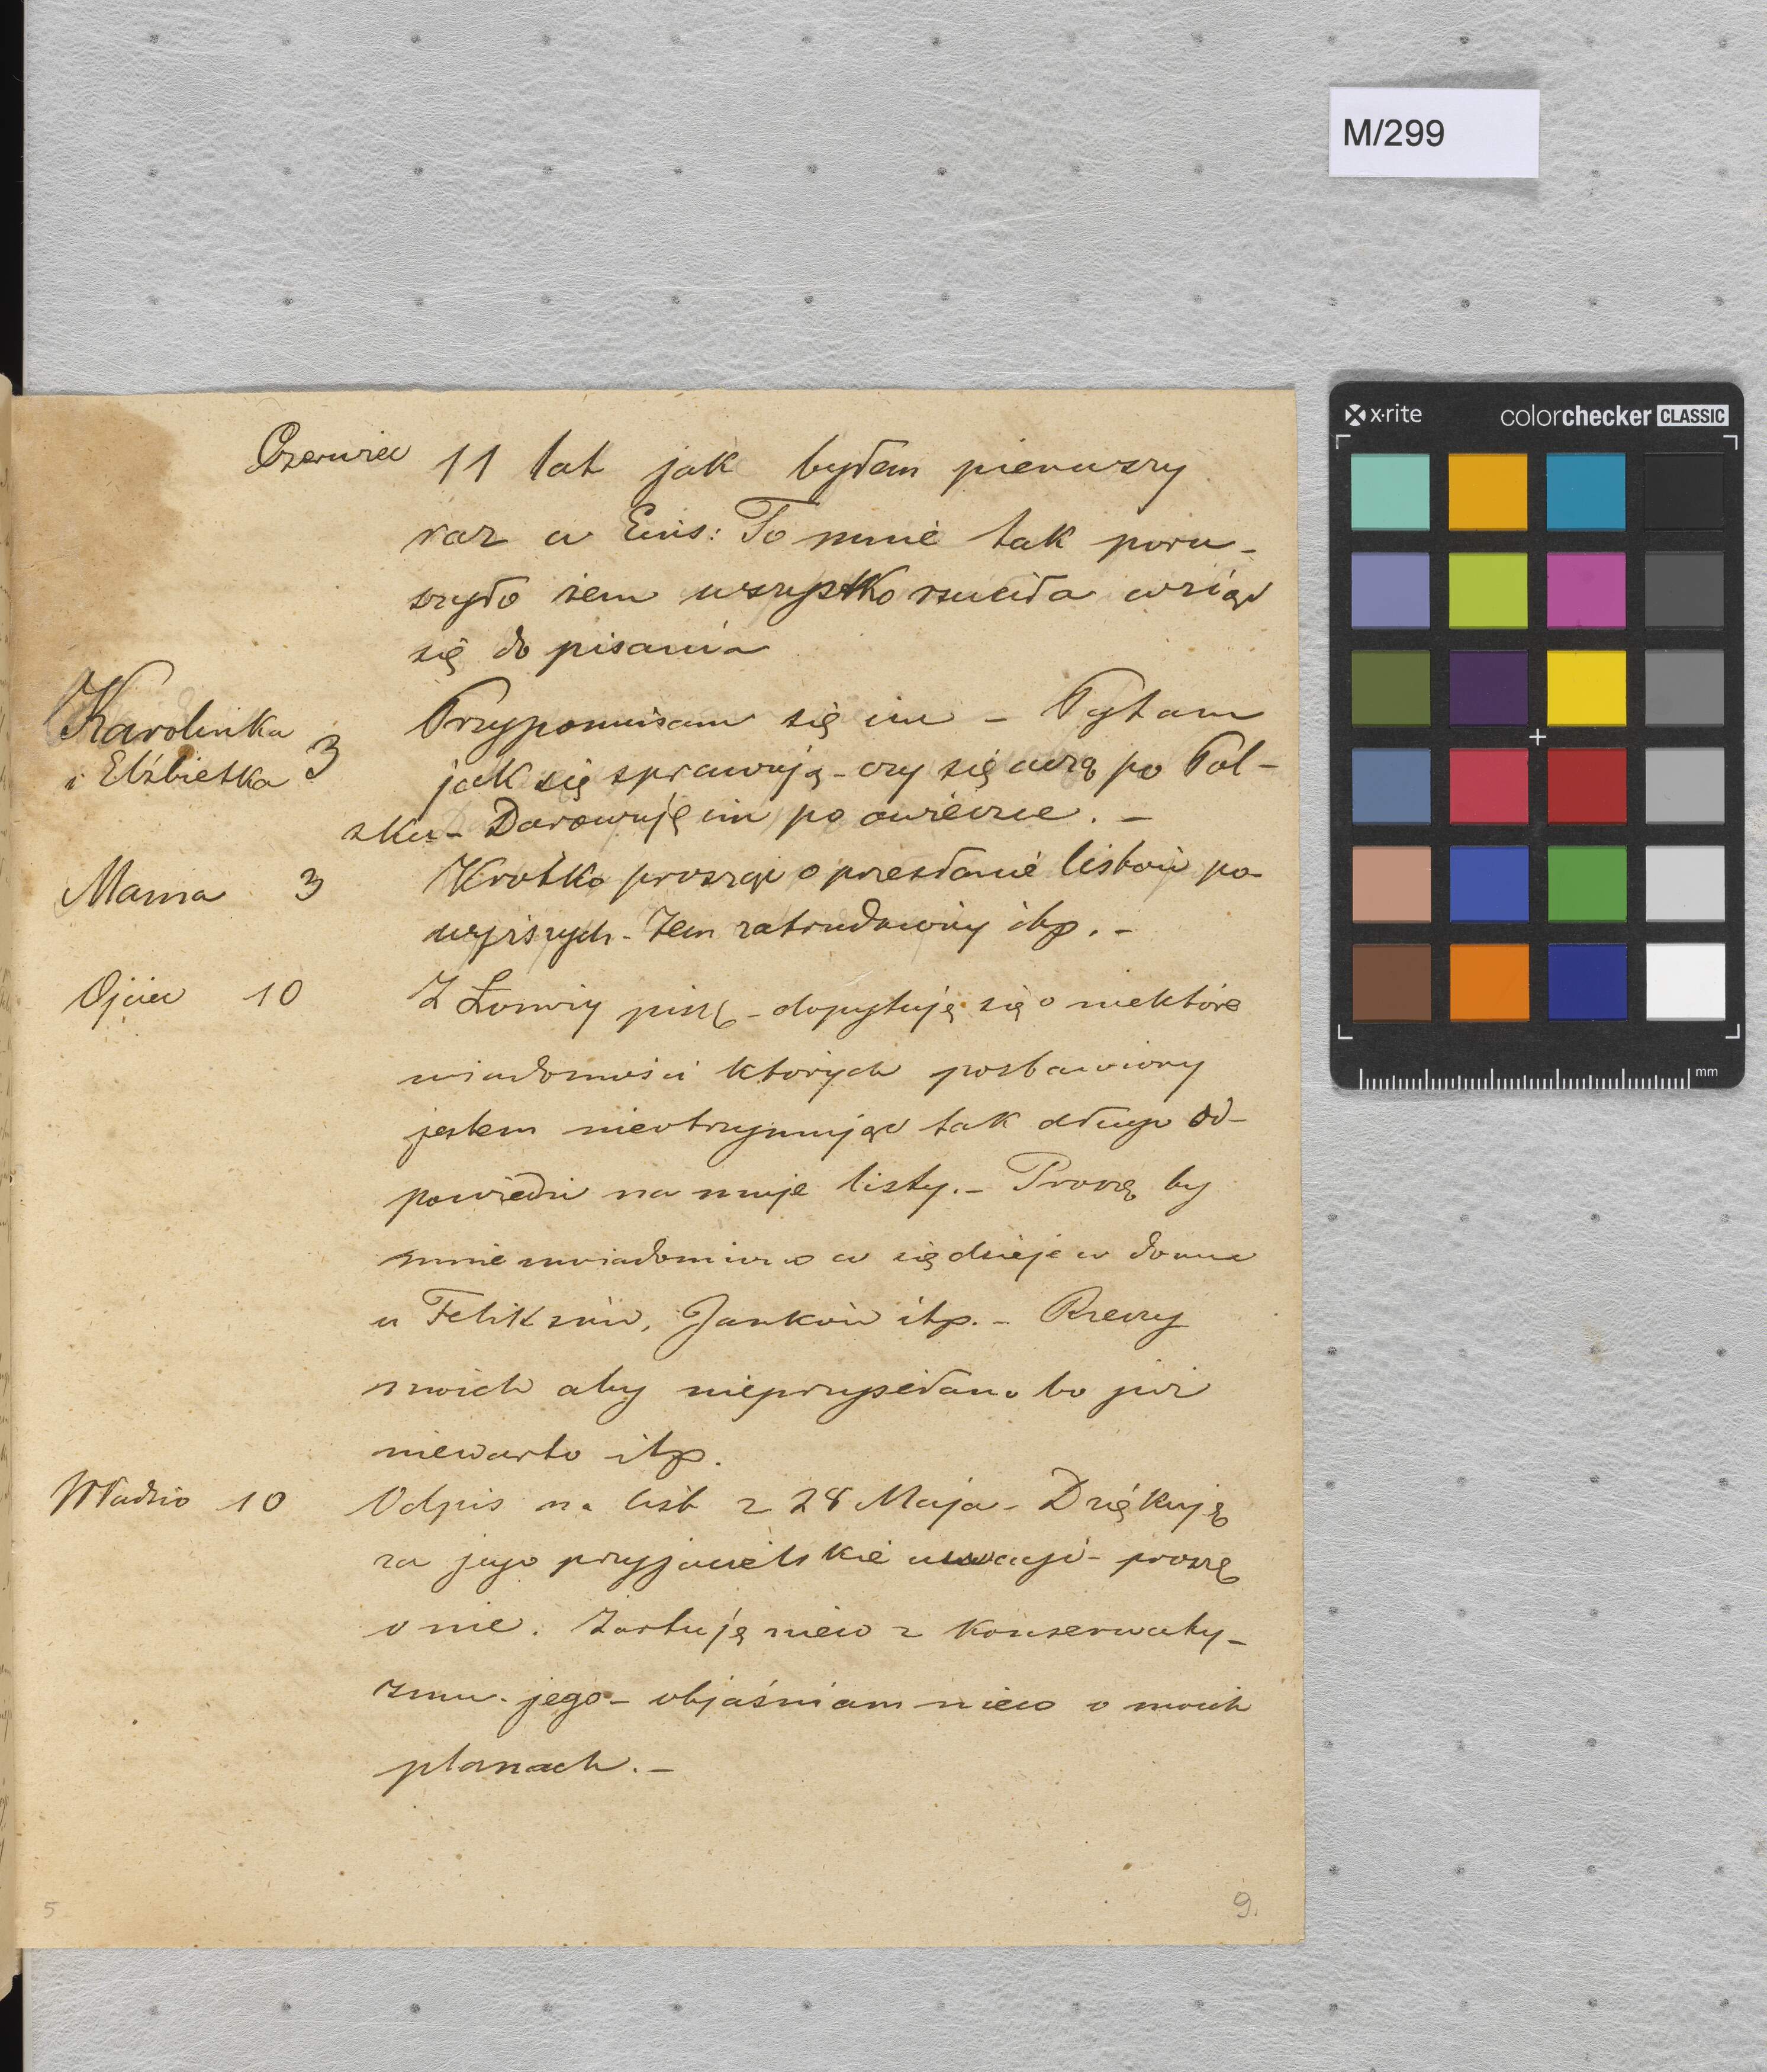 M/299
x·rite colorchecker CLASSIC
mm
Czerwiec 11 lat jak byłem pierwszy
raz w Ems: To mnie tak poru-
szyło żem wszystko rzucił a wziął
się do pisania
Karolinka i Elżbietka 3 Przypominam się im – Pytam
jak się sprawują – czy się uczą po Pol-
sku – Darowuję im po owieczce. –
Mama 3 Krótko proszę o przesłanie listów po-
wyższych – Żem zatrudniony itp. –
Ojciec 10 Z Łomży piszę – dopytuję się o niektóre
wiadomości których pozbawiony
jestem nieotrzymując tak długo od-
powiedzi na moje listy. – Proszę by
mnie uwiadomiono co się dzieje w domu
u Feliksów, Janków itp. – Rzeczy
moich aby nieprzysełano bo już
niewarto itp.
Władzio 10 Odpis na list z 28 Maja – Dziękuję
za jego przyjacielskie uwagi – proszę
o nie. Żartuję nieco z konserwaty-
zmu jego – objaśniam nieco o moich
planach. –
5 9.